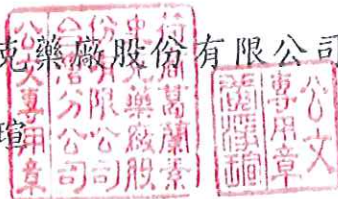 克藥廠股份有限公司
瑄
荷商葛蘭素
史克藥廠股
份有限公司
台灣分公司
公文專用章
公文
專用章